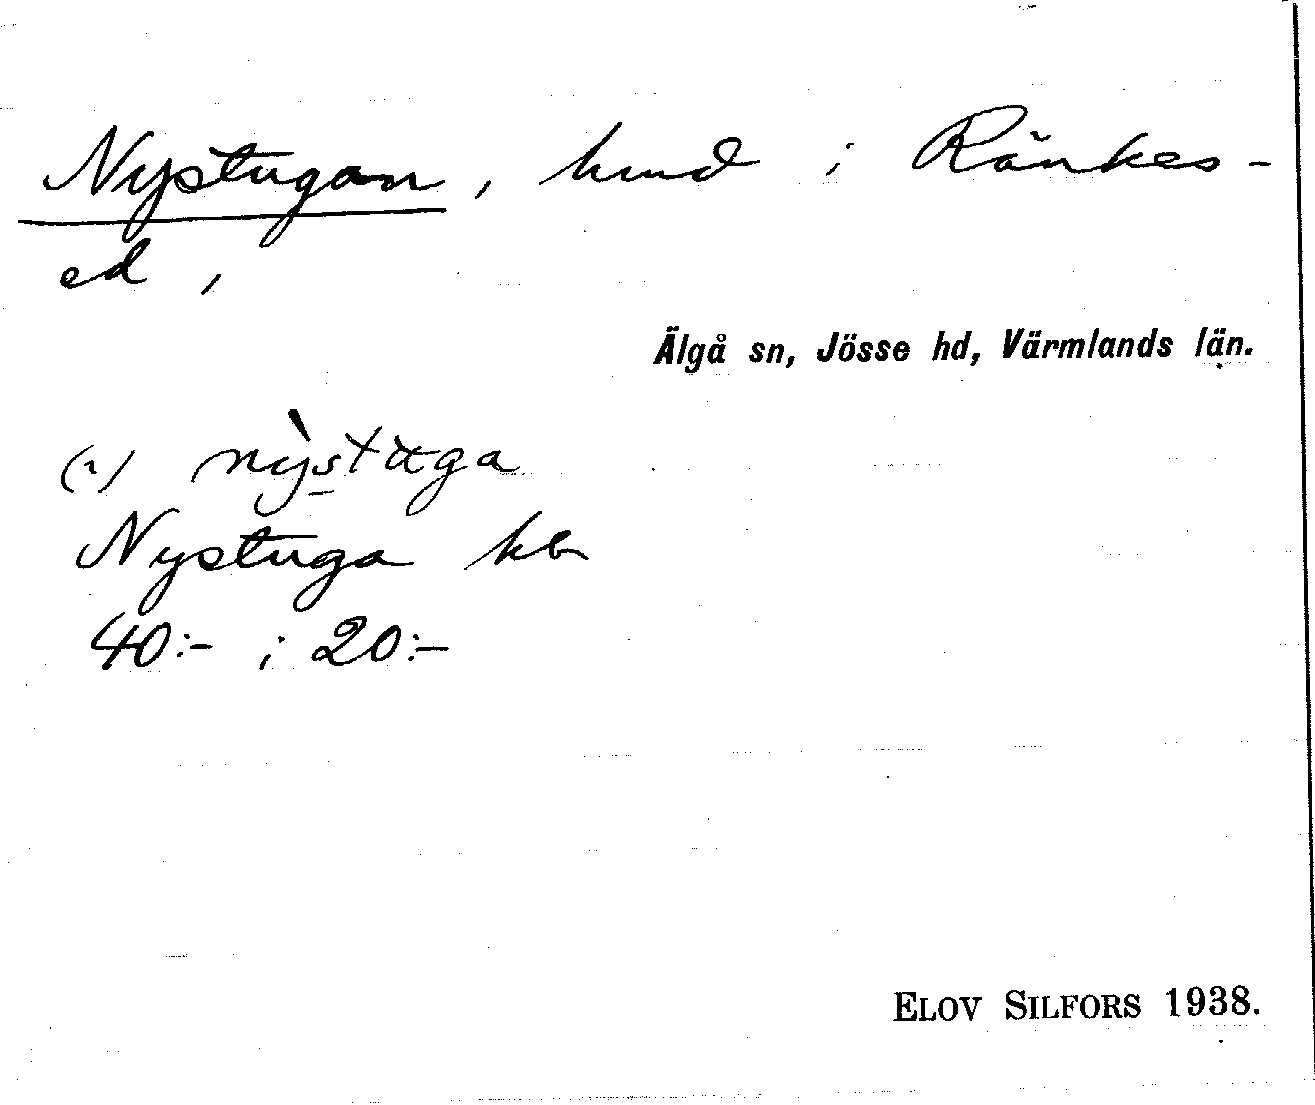 Nystugan, hmd i Ränkes-
ed,
Älgå sn, Jösse hd, Värmlands län.
(i) nỳstuga
Nystuga
40:- i 20:-
ELOV SILFORS 1938.